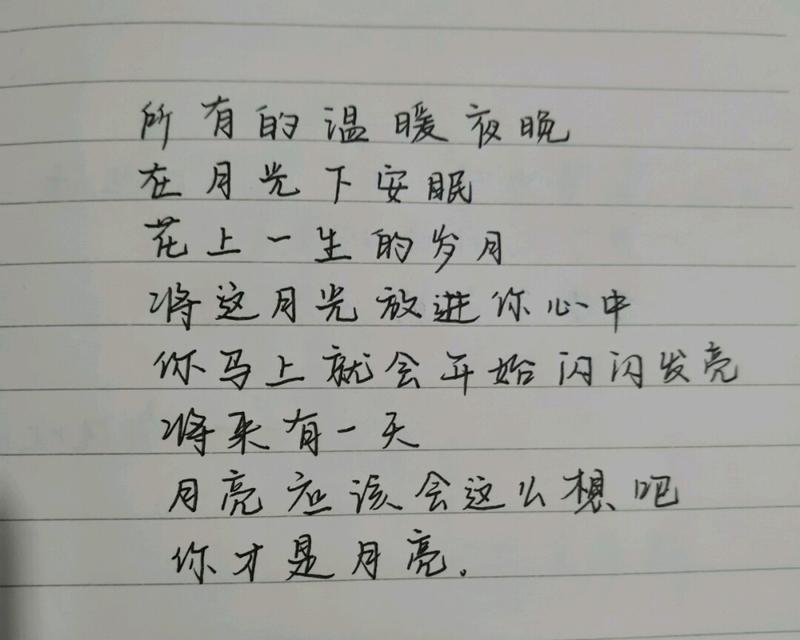 所有的温暖夜晚
在月光下安眠
花上一生的岁月
将这月光放进你心中
你马上就会开始闪闪发亮
将来有一天
月亮应该会这么想吧
你才是月亮.